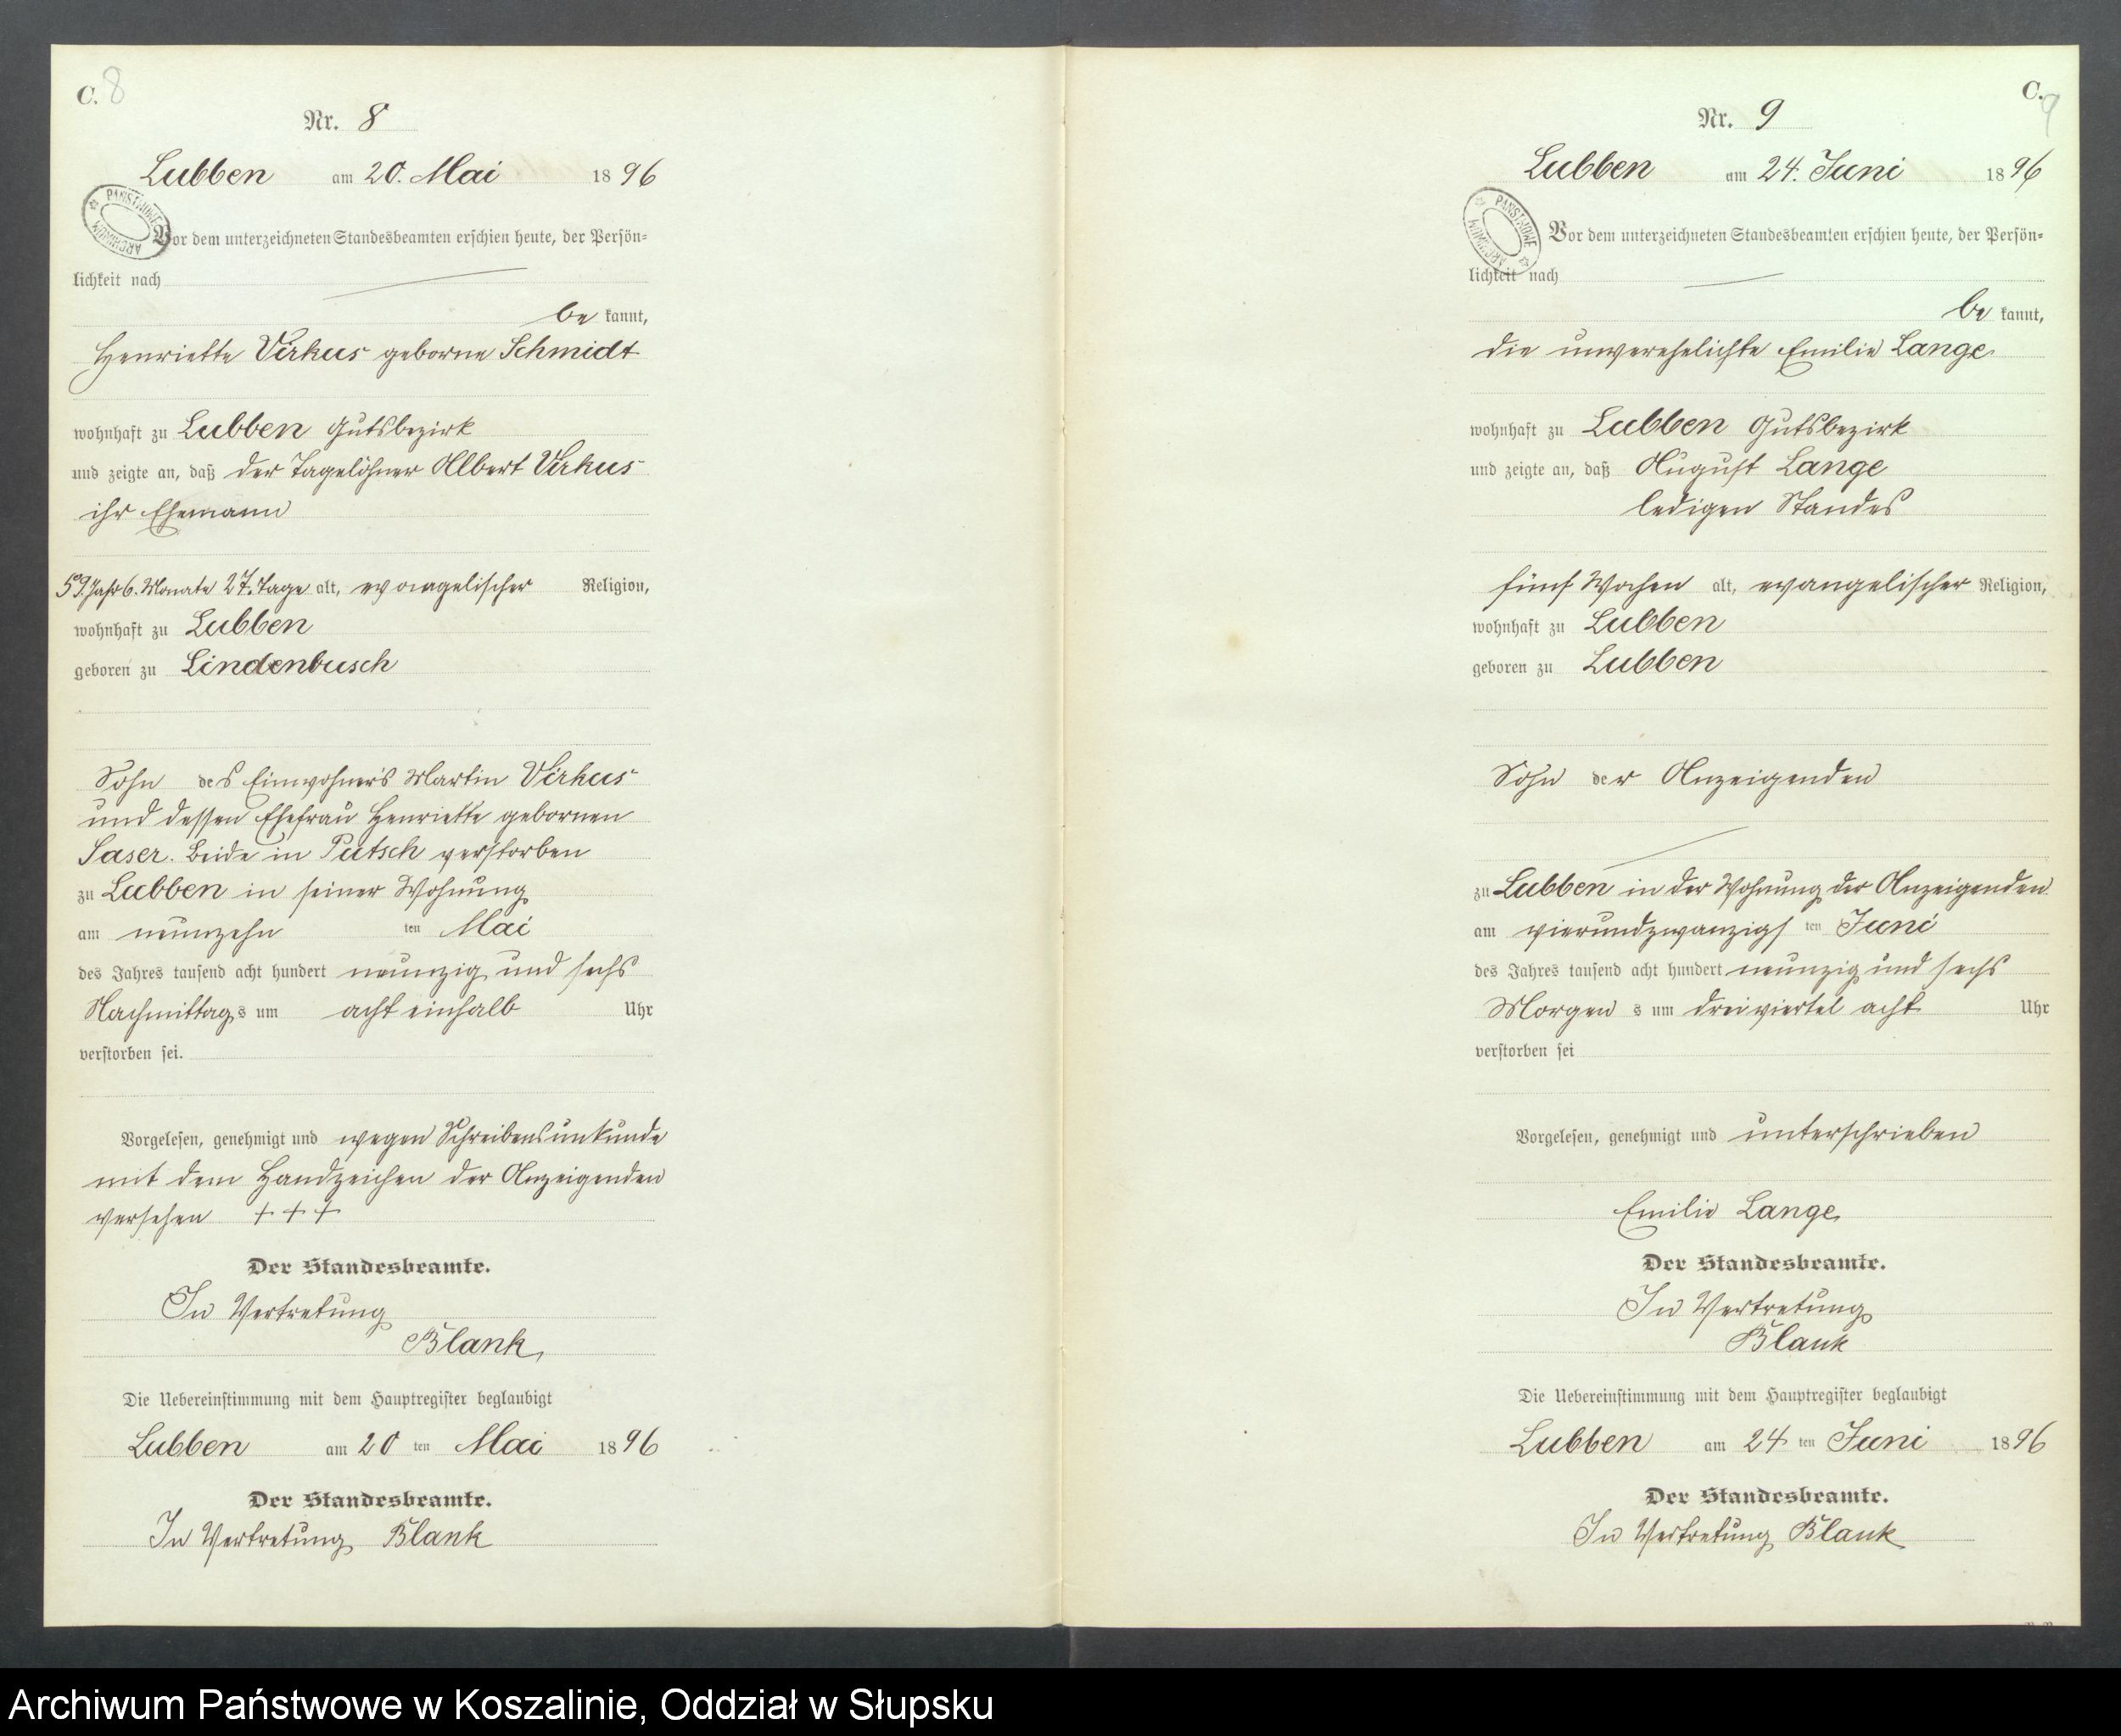 C. 8
Nr. 8
Lubben am 20. Mai 1896
ARCHIWUM PAŃSTWOWE
Vor dem unterzeichneten Standesbeamten erschien heute, der Persön=
lichkeit nach
be kannt,
Henriette Virkus geborne Schmidt
wohnhaft zu Lubben Gutsbezirk
und zeigte an, daß der Tagelöhner Albert Virkus
ihr Ehemann
59. Jahr 6. Monate 27. Tage alt, evangelischer Religion,
wohnhaft zu Lubben
geboren zu Lindenbusch
Sohn des Einwohners Martin Virkus
und dessen Ehefrau Henriette gebornen
Saser. Beide in Putsch verstorben
zu Lubben in seiner Wohnung
am neunzehn ten Mai
des Jahres tausend acht hundert neunzig und sechs
Nachmittags um acht einhalb Uhr
verstorben sei.
Vorgelesen, genehmigt und wegen Schreibensunkunde
mit dem Handzeichen der Anzeigenden
versehen + + +
Der Standesbeamte.
In Vertretung
Blank
Die Uebereinstimmung mit dem Hauptregister beglaubigt
Lubben am 20 ten Mai 1896
Der Standesbeamte.
In Vertretung Blank
C. 9
Nr. 9
Lubben am 24. Juni 1896
ARCHIWUM PAŃSTWOWE
Vor dem unterzeichneten Standesbeamten erschien heute, der Persön=
lichkeit nach
be kannt,
die unverehelichte Emilie Lange
wohnhaft zu Lubben Gutsbezirk
und zeigte an, daß August Lange
ledigen Standes
fünf Wochen alt, evangelischer Religion,
wohnhaft zu Lubben
geboren zu Lubben
Sohn der Anzeigenden
zu Lubben in der Wohnung der Anzeigenden
am vierundzwanzigs ten Juni
des Jahres tausend acht hundert neunzig und sechs
Morgen s um dreiviertel acht Uhr
verstorben sei
Vorgelesen, genehmigt und unterschrieben
Emilie Lange
Der Standesbeamte.
In Vertretung
Blank
Die Uebereinstimmung mit dem Hauptregister beglaubigt
Lubben am 24 ten Juni 1896
Der Standesbeamte.
In Vertretung Blank
Archiwum Państwowe w Koszalinie, Oddział w Słupsku